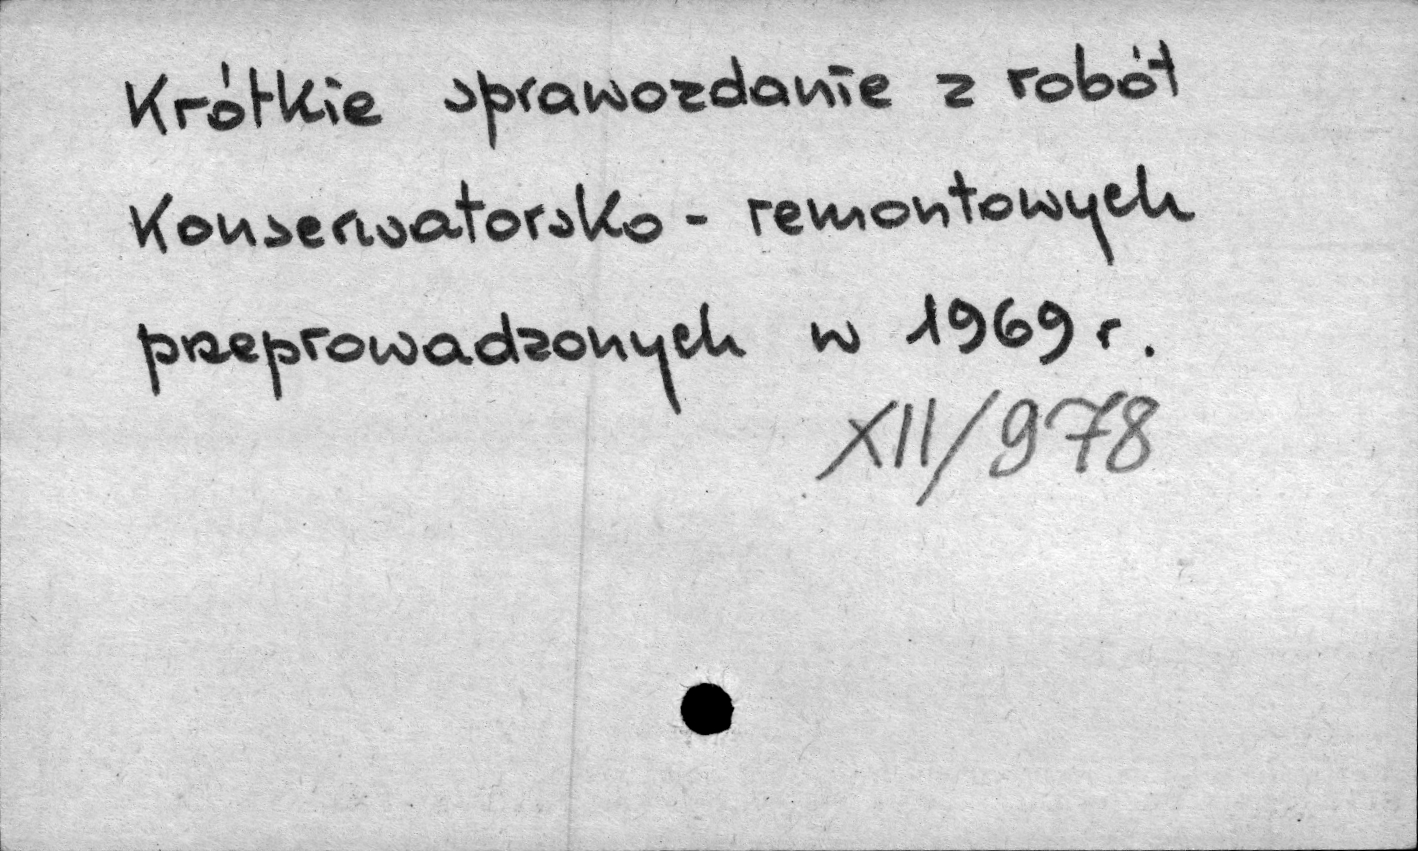 Krótkie sprawozdanie z robót
Konserwatorsko - remontowych
przeprowadzonych w 1969 r.
XII/978